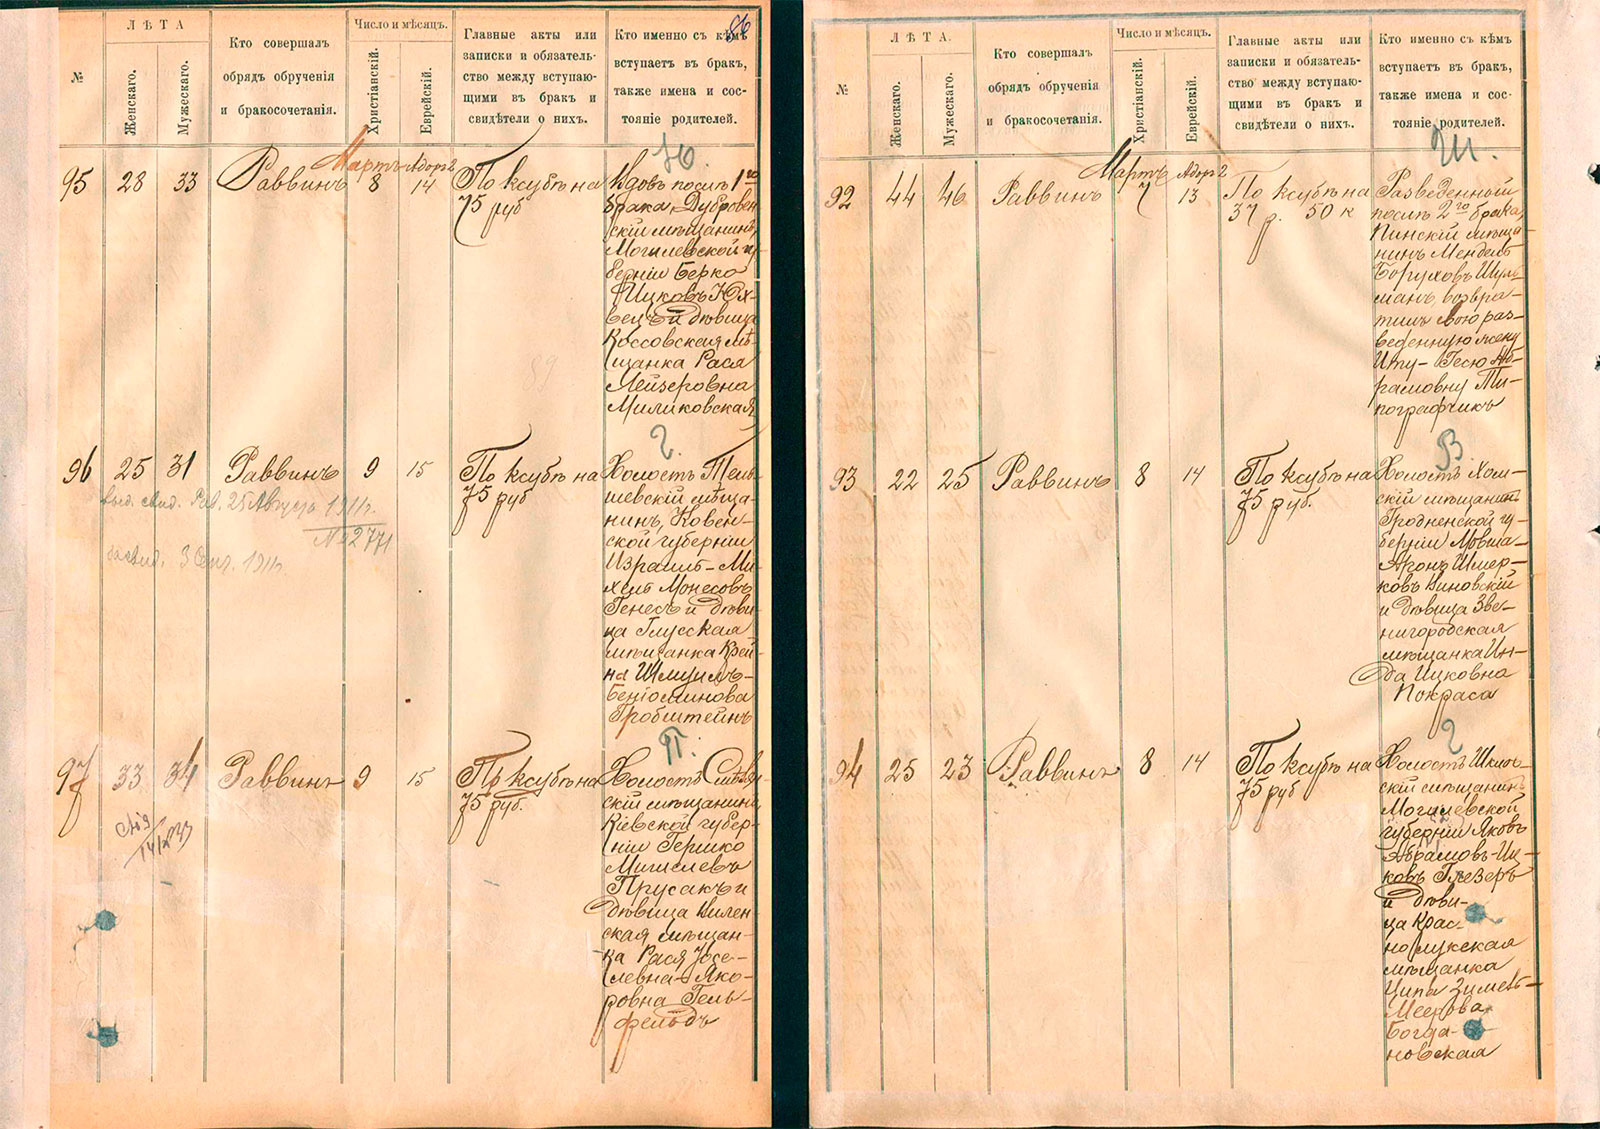 86
№
ЛѢТА
Женскаго.
Мужескаго.
Кто совершалъ
обрядъ обрученія
и бракосочетанія.
Число и мѣсяцъ.
Христіанскій.
Еврейскій.
Главные акты или
записки и обязатель-
ство между вступаю-
щими въ бракъ и
свидѣтели о нихъ.
Кто именно съ кѣмъ
вступаетъ въ бракъ,
также имена и сос-
тояніе родителей.
Ю.
95
28
33
Раввинъ
Мартъ
8
Адоръ 2
14
По ксубѣ на
75 руб
Вдовъ послѣ 1го
брака, Дубровен
скій мѣщанинъ
Могилевской гу
берніи Берко
Ицковъ Юх-
вецъ и дѣвица
Коссовская мѣ
щанка Рася
Лейзеровна
Миликовская
Г.
96
25
31
Раввинъ
9
15
По ксубѣ на
75 руб
Холостъ Тель
шевскій мѣща
нинъ, Ковен-
ской губерніи
Израиль-Ми
хель Монесовъ
Генесъ и дѣви
ца Глусская
мѣщанка Крей
на Шмуилъ-
Беніоминова
Гробштейнъ
выд. свид. Рав. 25 Августа 1911г.
№ 2771
3 Сент. 1911г.
П.
97
33
34
Раввинъ
9
15
По ксубѣ на
75 руб.
скій мѣщанинъ
Кіевской губер-
ніи Гершко
Прусакъ и
дѣвица Вилен-
ская мѣщан-
ка Рася Іосе-
левна-Яко-
ровна Гель-
фельдъ
№
ЛѢТА.
Женскаго.
Мужескаго.
Кто совершалъ
обрядъ обрученія
и бракосочетанія.
Число и мѣсяцъ.
Христіанскій.
Еврейскій.
Главные акты или
записки и обязатель-
ство между вступаю-
щими въ бракъ и
свидѣтели о нихъ.
Кто именно съ кѣмъ
вступаетъ въ бракъ,
также имена и сос-
тояніе родителей.
Ш.
92
44
46
Раввинъ
Мартъ
7
Адоръ 2
13
По ксубѣ на
37 р. 50 к
Разведенный
послѣ 2го брака,
Пинскій мѣща
нинъ Мендель
Боруховъ Шуль
манъ, возвра-
тилъ свою раз-
веденную жену
Иту-Гесю Аб-
рамовну Ти-
пографчикъ
В.
93
22
25
Раввинъ
8
14
По ксубѣ на
75 руб.
Холостъ
скій мѣщанинъ
Гродненской гу-
берніи Мовша-
Аронъ Шмер-
ковъ Виновскій
и дѣвица Зве-
нигородская
мѣщанка Ин-
да Ицковна
Покраса
Г
94
25
23
Раввинъ
8
14
По ксубѣ на
75 руб
Холостъ Шклов-
скій мѣщанинъ
Могилевской
губерніи Яковъ
Абрамовъ-Иц-
ковъ Глезеръ
и дѣви-
ца Крас-
нолукская
мѣщанка
Ципа Зиметъ-
Меерова
Богда-
новская